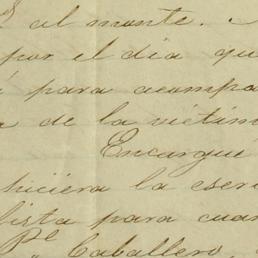 al monte.
por el dia que
para acompa
de la victim
Encargué
hiciera la escri
lista para cuan
Pe Caballero,